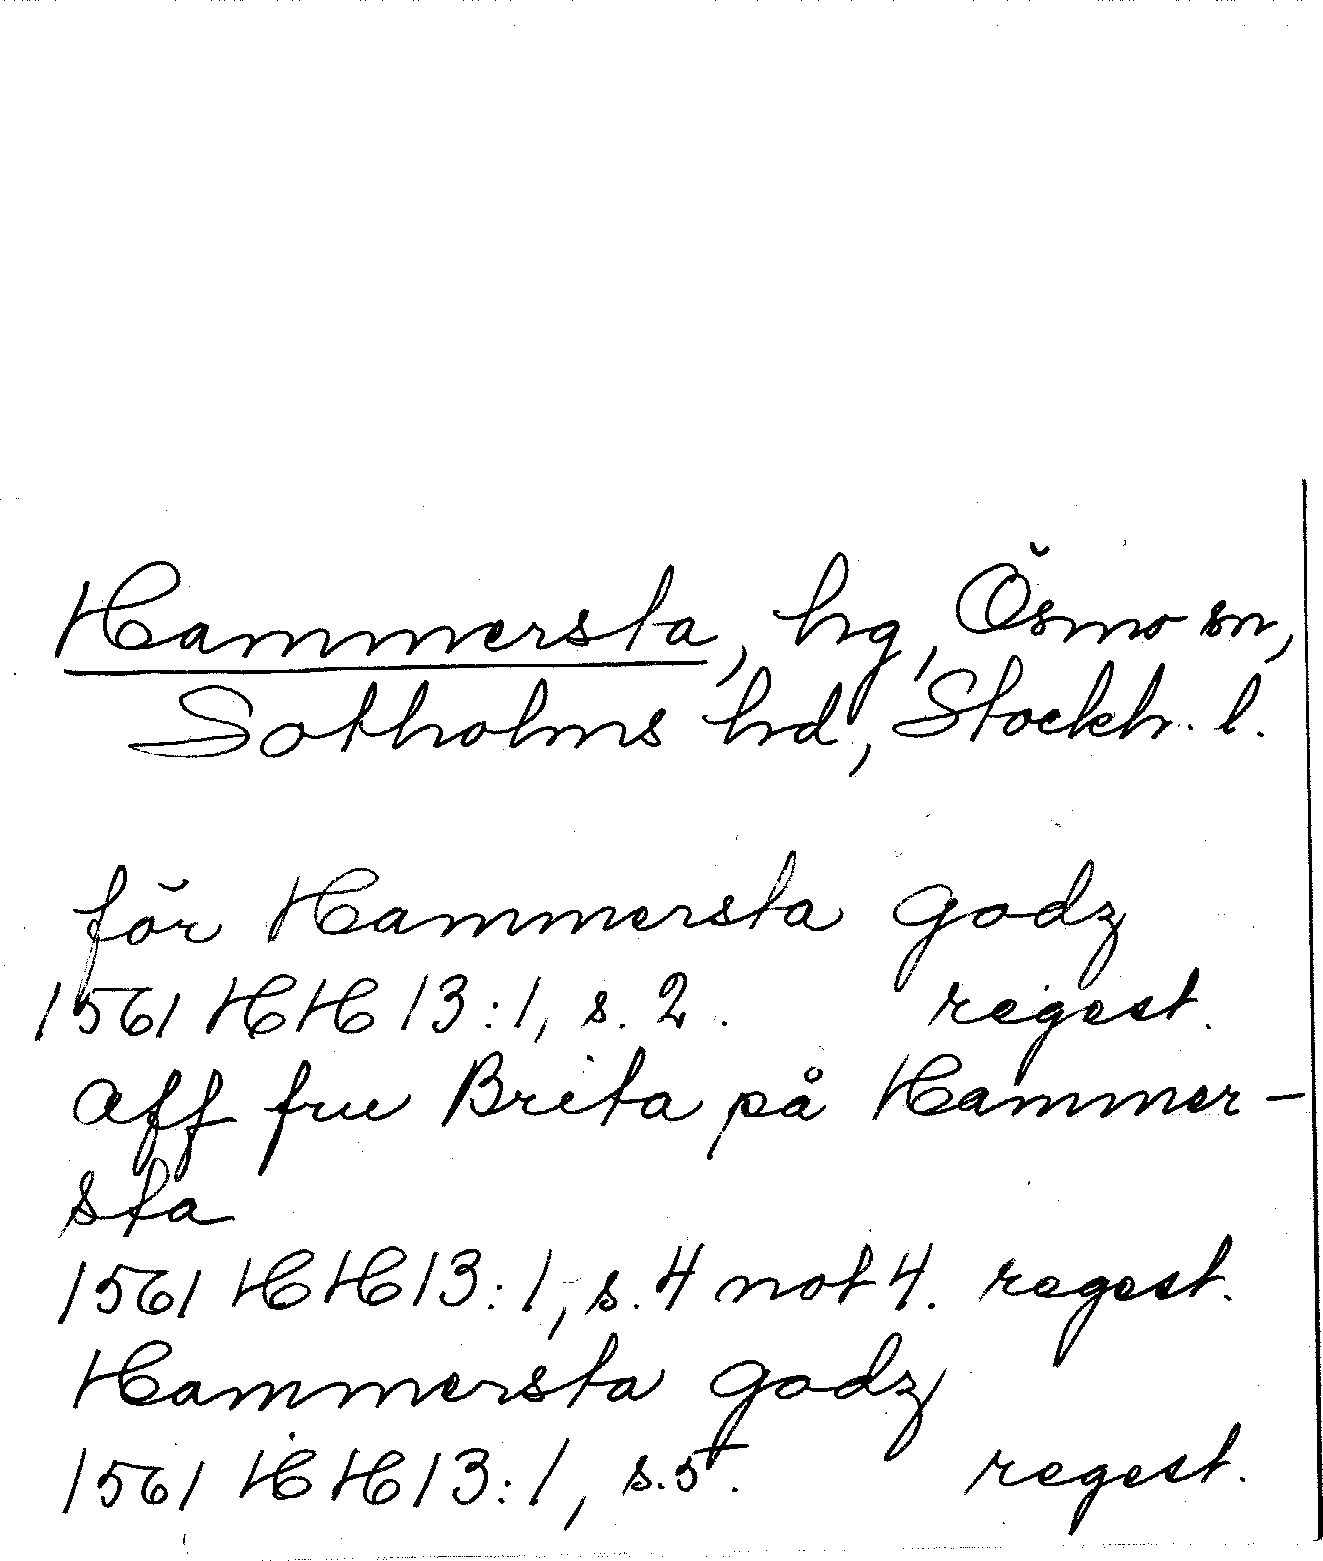 Hammersta, hg, Ösmo sn,
Sotholms hd, Stockh. l.
för Hammersta godz
1561 HH 13:1, s. 2. regest.
aff fru Brita på Hammer-
sta
1561 HH 13:1, s. 4 not 4. regest.
Hammersta godz
1561 HH 13:1, s. 5. regest.